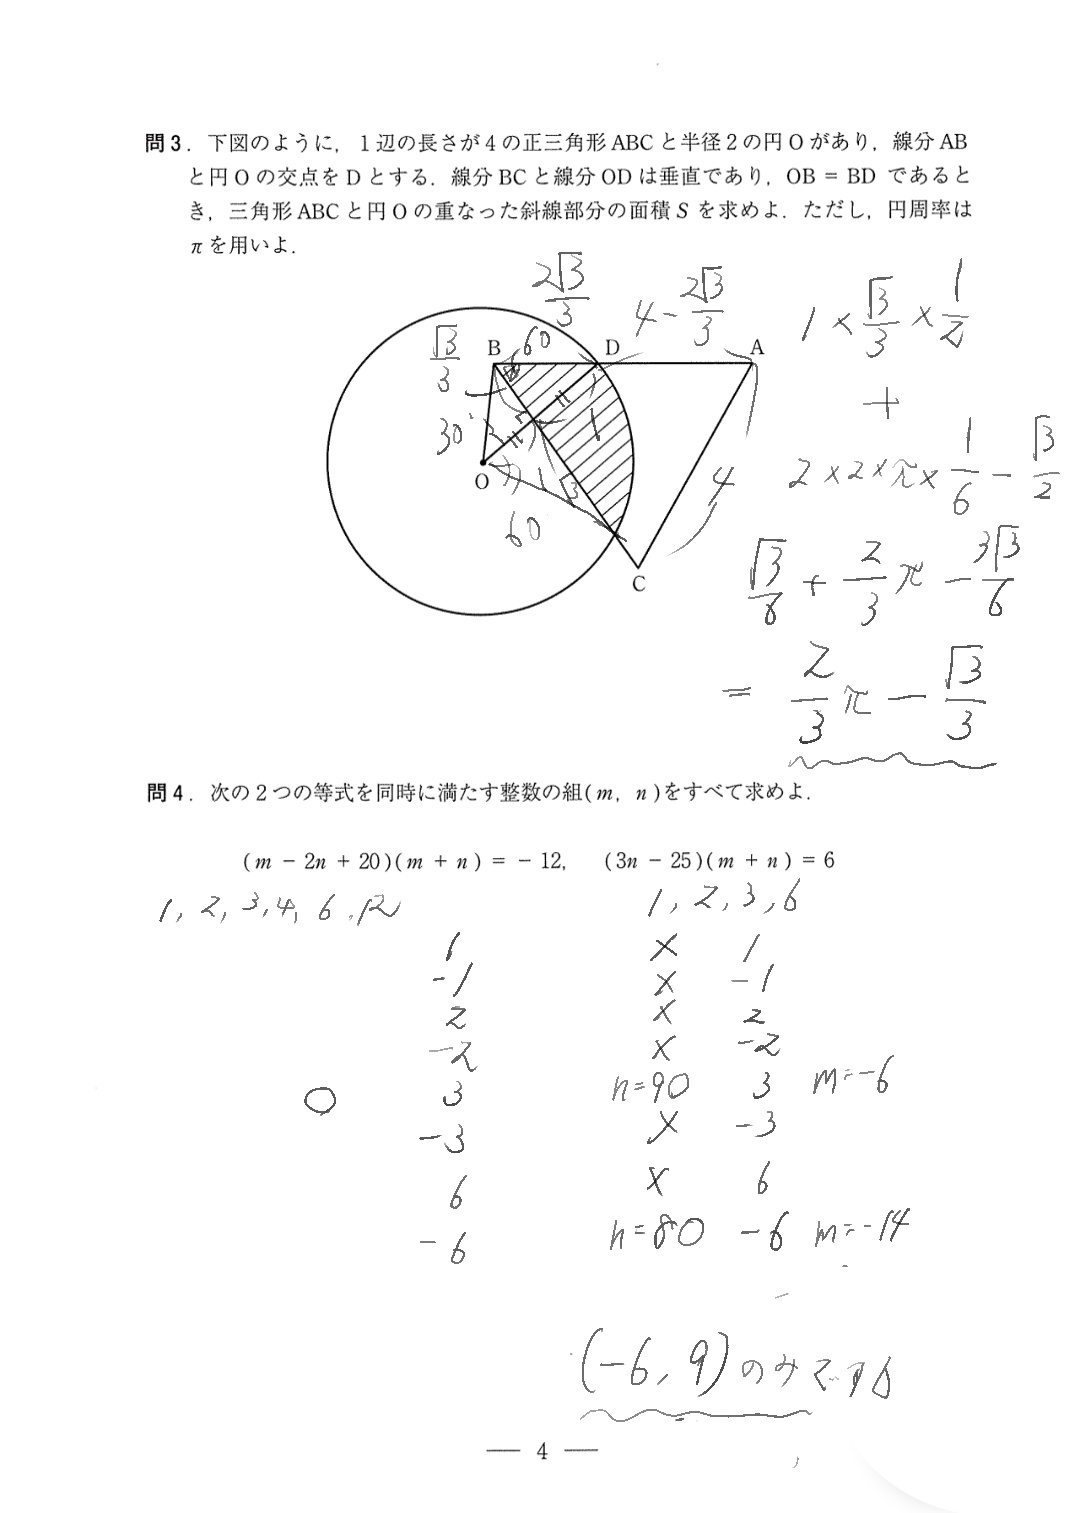 問3．下図のように，1辺の長さが4の正三角形ABCと半径2の円Oがあり，線分AB
と円Oの交点をDとする．線分BCと線分ODは垂直であり，OB = BD であると
き，三角形ABCと円Oの重なった斜線部分の面積Sを求めよ．ただし，円周率は
πを用いよ．
2√3/3
4−2√3/3
1×√3/3×1/2
√3/3
60
B
D
A
+
30°
1
O
1
√3
4
2×2×π×1/6−√3/2
60
C
√3/6+2/3π−3√3/6
=2/3π−√3/3
問4．次の2つの等式を同時に満たす整数の組(m，n)をすべて求めよ．
(m − 2n + 20)(m + n) = − 12,　(3n − 25)(m + n) = 6
1, 2, 3, 4, 6, 12　1, 2, 3, 6
1　×　1
-1　×　-1
2　×　2
-2　×　-2
○　3　n=90　3　m=-6
-3　×　-3
6　×　6
-6　n=80　-6　m=-14
(-6, 9)のみです
— 4 —